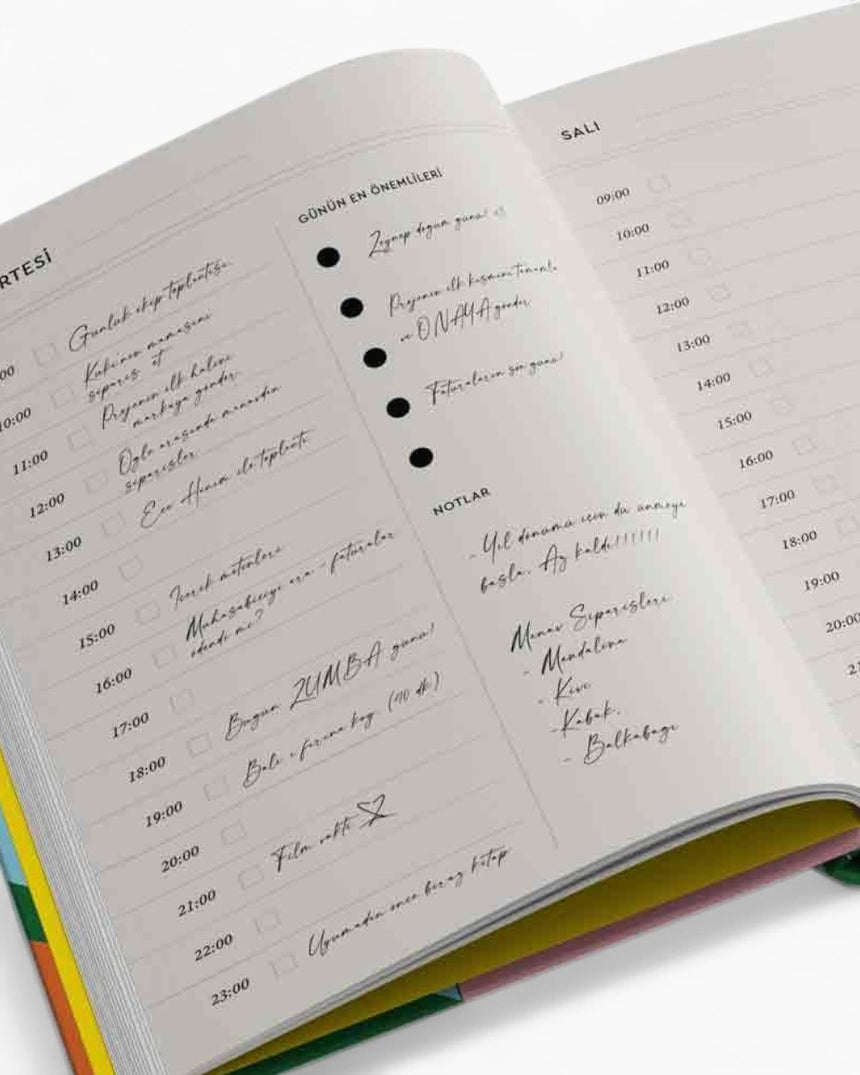 RTESİ
00
Günlük ekip toplantısı
10:00
Kuki'nin mamasını
sipariş et
11:00
Projenin ilk halini
markaya gönder.
12:00
Öğle arasında manavdan
siparişler
13:00
Ece Hanım ile toplantı
14:00
15:00
İçerik metinleri
16:00
Muhasebeciyi ara - faturalar
ödendi mi?
17:00
18:00
Bugün ZUMBA günü!
19:00
Balı fırına koy. (40 dk.)
20:00
21:00
Film vakti
22:00
23:00
Uyumadan önce biraz kitap
GÜNÜN EN ÖNEMLİLERİ
Zeynep doğum günü!
Projenin ilk kısmını tamamla
ve ONAYA gönder.
Faturaların son günü!
NOTLAR
- Yıl dönümü için düşünmeye
başla. Az kaldı!!!!!!
Manav Siparişleri
- Mandalina
- Kivi
- Kabak.
- Balkabağı
SALI
09:00
10:00
11:00
12:00
13:00
14:00
15:00
16:00
17:00
18:00
19:00
20:00
21